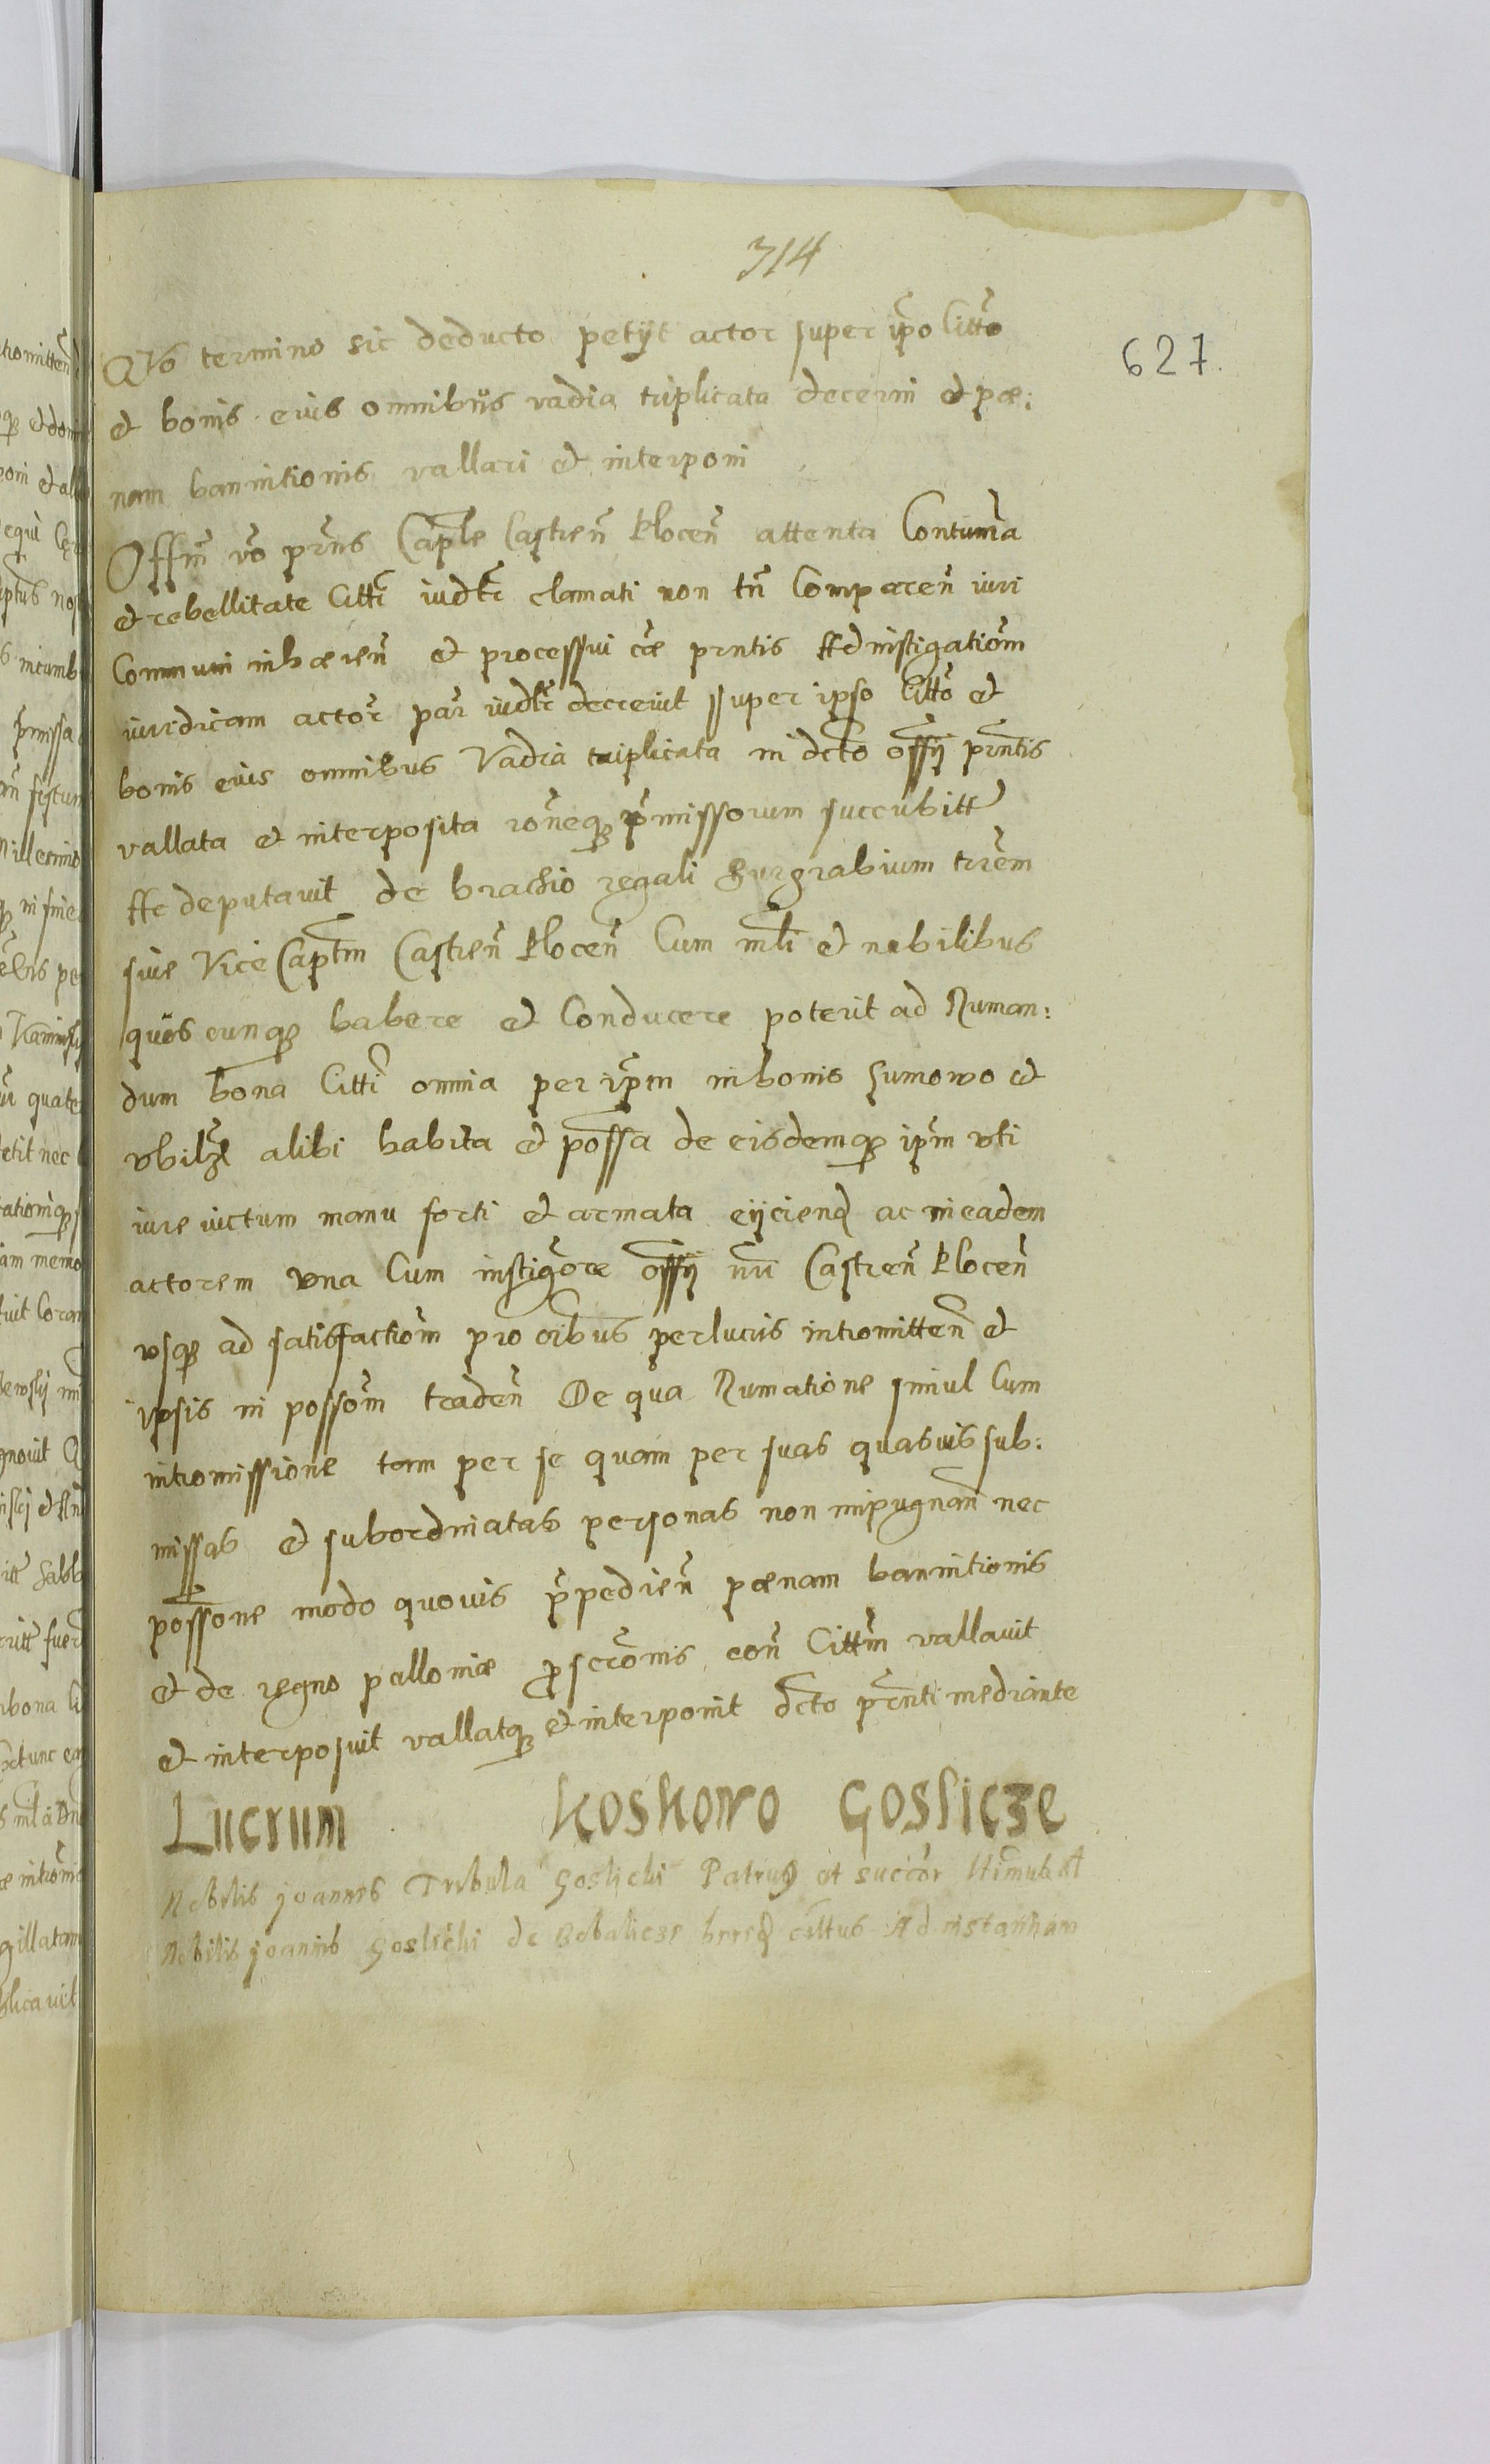 314
627.
Quo termino sic deducto petijt actor super ip̄o Citt̄o
et bonis eius omnibus vadia triplicata decerni et poe:
nam bannitionis vallari et interponi
Offm̄ vō pr̄ns Capl̄e Castren̄ Plocen̄ attenta Contum̄a
et rebellitate Citt̄i iudlr̄ clamati non tn̄ Comparen̄ iuri
Communi inhaeren̄ et processui cāe prntis Ad instigatiōm
iuridicam actor̄ par̄ iudlr̄ decreuit super ipso Citt̄o et
bonis eius omnibus Vadia triplicata in dct̄o offij̄ prn̄tis
vallata et interposita rōneq3 p̄missorum succubitt̄
Ac deputauit de brachio regali Burgrabium trēm
siue Vice Capt̄m Castren̄ Plocen̄ Cum ml̄i et nobilibus
quos cunq3 habere et Conducere poterit ad Ruman:
dum bona Citt̄i omnia per ip̄m in bonis Sumowo et
vbilz̄t alibi habita et poss̄a de eisdemq3 ip̄m vti
iure victum manu forti et armata eijciend̄ ac in eadem
actorem vna Cum instigōre offij̄ nr̄i Castren̄ Plocen̄
vsq3 ad satisfactiōm pro oībus perlucris intromitten̄ et
ipsis in possōm traden̄ De qua Rumatione simul Cum
intromissione tam per se quam per suas quasuis sub:
missas et subordinatas personas non impugnan̄ nec
poss̄one modo quouis p̄pedien̄ poenam bannitionis
et de regno palloniae p̄scrōnis con̄ Citt̄m vallauit
et interposuit vallatq3 et interponit dct̄o prn̄ti mediante
Lucrum Koskowo Goslicze
Nobilis joannes Tribula Goslicki Patruus et succōr
Nobilis joannis Goslicki de cittus Ad instantiam